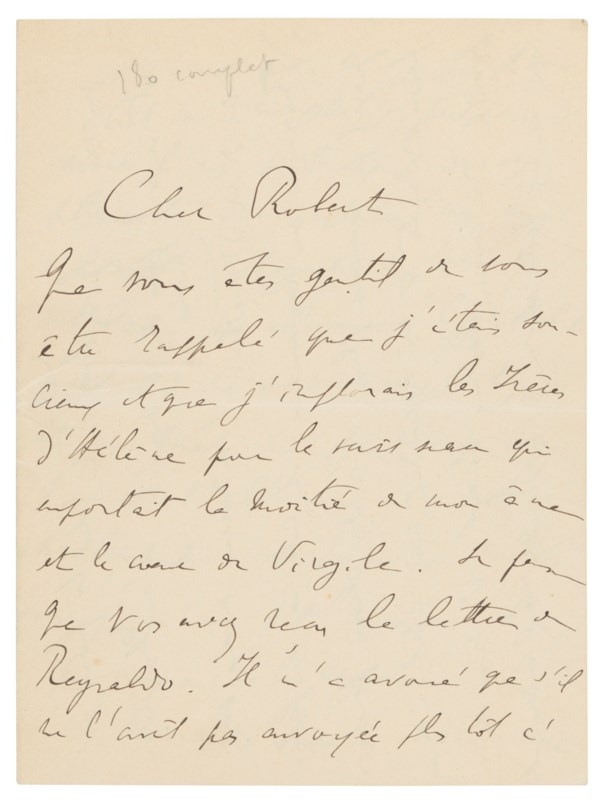 180 complet
Cher Robert
Que vous êtes gentil de vous
être rappelé que j'étais sou-
cieux et que j'implorais les Frères
d'Hélène pour le vaisseau qui
emportait la moitié de mon âme
et le cœur de Virgile. Je pense
que vous avez reçu la lettre de
Reynaldo. Il m'a avoué que s'il
ne l'avait pas envoyée plus tôt c'